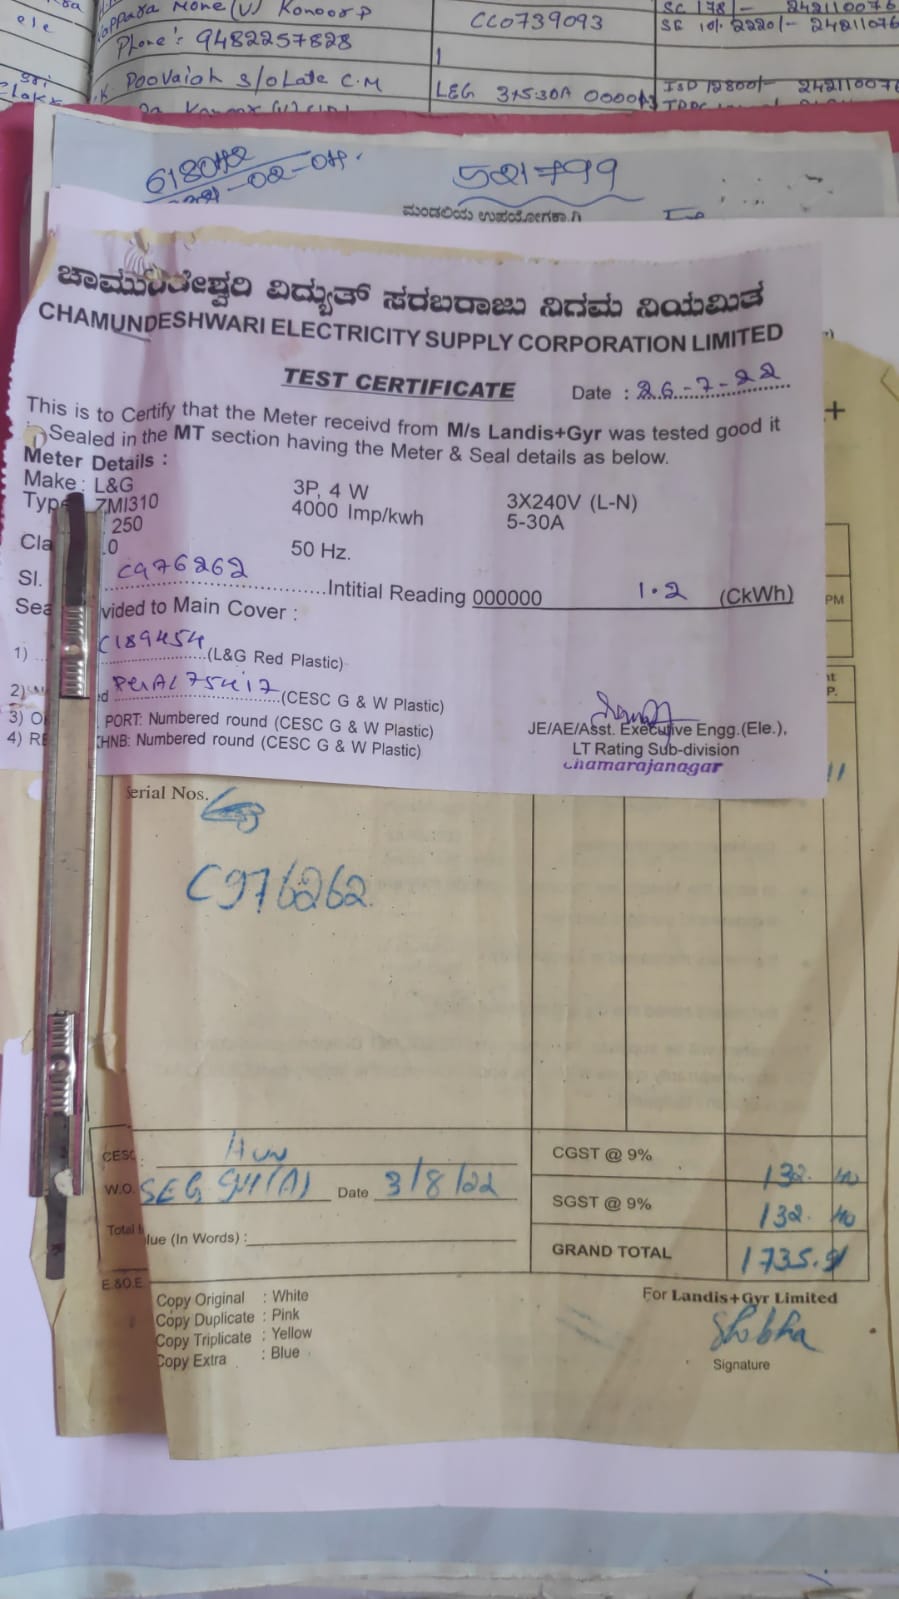 Kappara Mone (V) Konoor P
Phone: 9482257828
CC0739093
SC 178/- 242110076
SC 101. 2220/- 24211076
Poovaiah S/o Late C.M
L&G 3x5.30A
ISD 12800/-
521799
ಮಂಡಲಿಯ ಉಪಯೋಗಕ್ಕಾಗಿ
ಚಾಮುಂಡೇಶ್ವರಿ ವಿದ್ಯುತ್ ಸರಬರಾಜು ನಿಗಮ ನಿಯಮಿತ
CHAMUNDESHWARI ELECTRICITY SUPPLY CORPORATION LIMITED
TEST CERTIFICATE
Date : 26-7-22
This is to Certify that the Meter receivd from M/s Landis+Gyr was tested good it
Sealed in the MT section having the Meter & Seal details as below.
Meter Details :
Make : L&G 3P, 4 W 3X240V (L-N)
Type ZMI310 4000 Imp/kwh 5-30A
250
Cla .0 50 Hz.
Sl. C976262 Intitial Reading 000000 1.2 (CkWh)
Sea vided to Main Cover :
1) C189454 (L&G Red Plastic)
2) (CESC G & W Plastic)
3) O PORT: Numbered round (CESC G & W Plastic)
4) RE HNB: Numbered round (CESC G & W Plastic)
JE/AE/Asst. Executive Engg.(Ele.),
LT Rating Sub-division
Chamarajanagar
PM
11
Serial Nos.
C976262
CESC Hun
W.O. Date 3/8/22
Total lue (In Words) :
CGST @ 9% 132. 40
SGST @ 9% 132. 40
GRAND TOTAL 1735.91
E.&O.E.
Copy Original : White
Copy Duplicate : Pink
Copy Triplicate : Yellow
Copy Extra : Blue
For Landis+Gyr Limited
Shobha
Signature